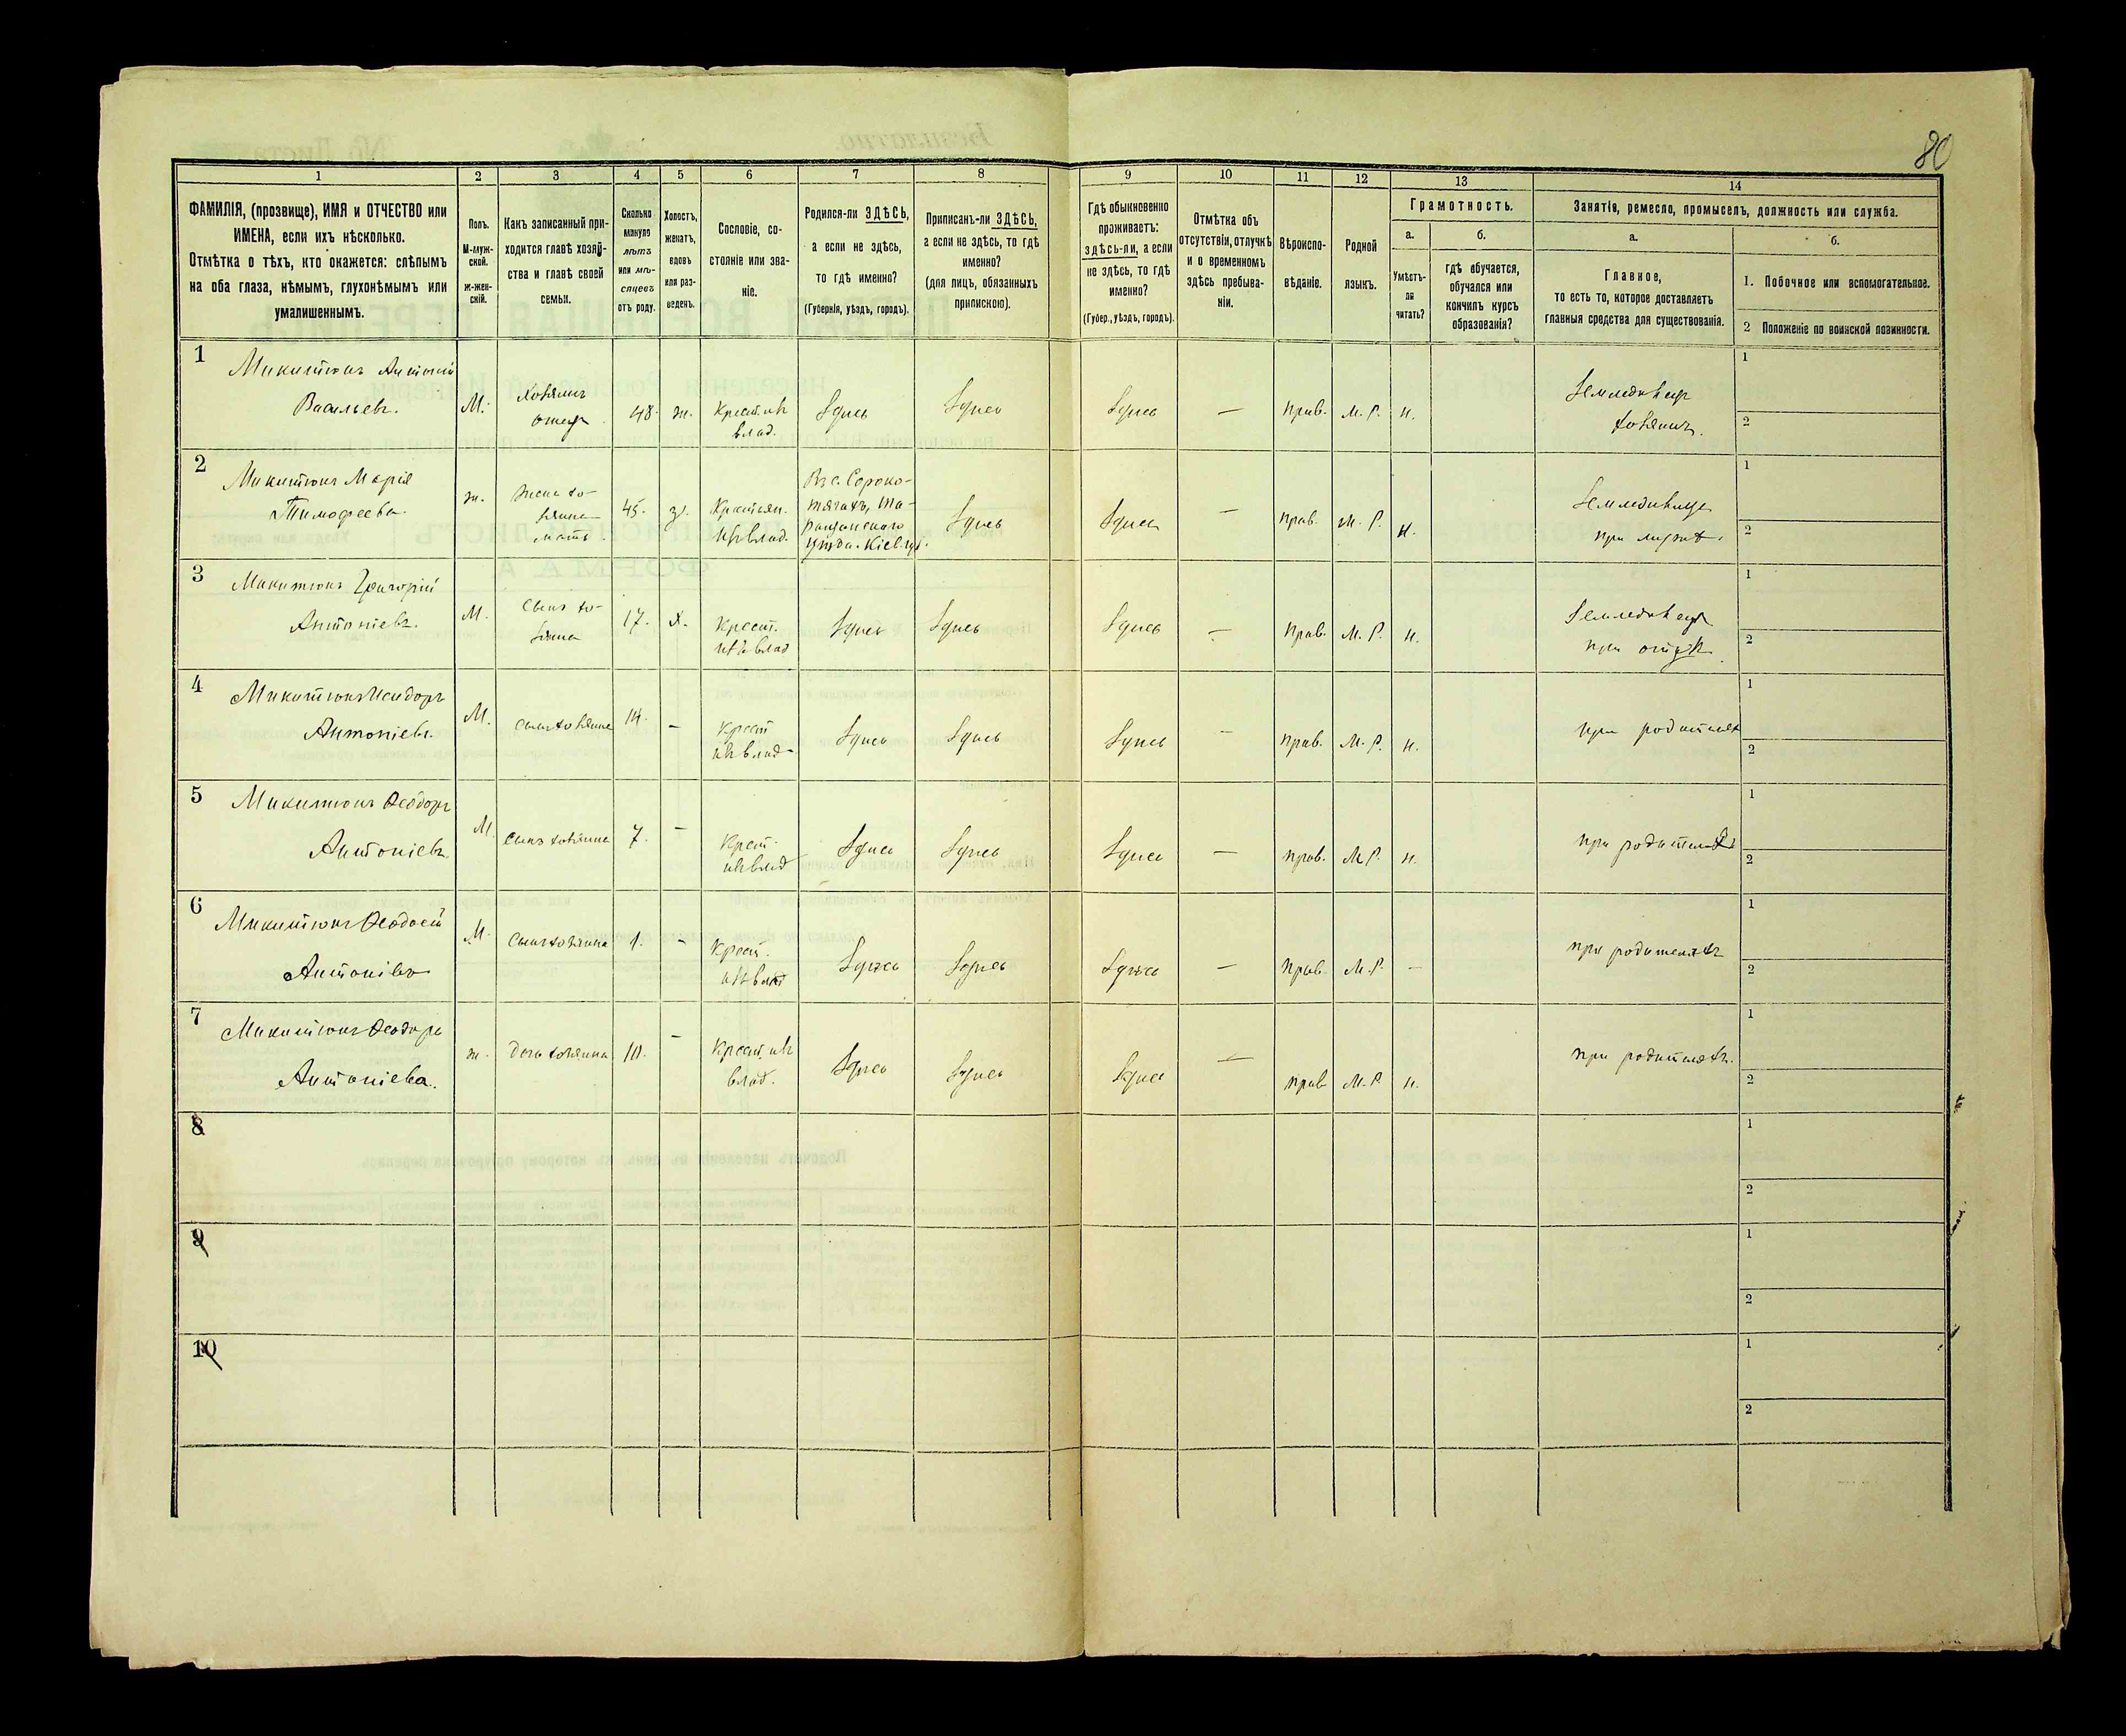 80
1
2
3
4
5
6
7
8
9
10
11
12
13
14
ФАМИЛІЯ, (прозвище), ИМЯ и ОТЧЕСТВО или
ИМЕНА, если ихъ нѣсколько.
Отмѣтка о тѣхъ, кто окажется: слѣпымъ
на оба глаза, нѣмымъ, глухонѣмымъ или
умалишеннымъ.
Полъ.
М-муж-
ской.
ж-жен-
скій.
Какъ записанный при-
ходится главѣ хозяй-
ства и главѣ своей
семьи.
Сколько
минуло
лѣтъ
или мѣ-
сяцевъ
отъ роду.
Холостъ,
женатъ,
вдовъ
или раз-
веденъ.
Сословіе, со-
стояніе или зва-
ніе.
Родился-ли ЗДѢСЬ,
а если не здѣсь,
то гдѣ именно?
(Губернія, уѣздъ, городъ).
Приписанъ-ли ЗДѢСЬ,
а если не здѣсь, то гдѣ
именно?
(для лицъ, обязанныхъ
припискою).
Гдѣ обыкновенно
проживаетъ:
здѣсь-ли, а если
не здѣсь, то гдѣ
именно?
(Губер., уѣздъ, городъ).
Отмѣтка объ
отсутствіи, отлучкѣ
и о временномъ
здѣсь пребыва-
ніи.
Вѣроиспо-
вѣданіе.
Родной
языкъ.
Грамотность.
а.
Умѣетъ-
ли
читать?
б.
гдѣ обучается,
обучался или
кончилъ курсъ
образованія?
Занятія, ремесло, промыселъ, должность или служба.
а.
Главное,
то есть то, которое доставляетъ
главныя средства для существованія.
б.
1. Побочное или вспомогательное.
2 Положеніе по воинской повинности.
1
Микитюкъ Антоній
Васильевъ.
М.
Хозяинъ
отецъ
48.
ж.
Крест. изъ
влад.
Здѣсь
Здѣсь
Здѣсь
—
прав.
М. Р.
н.
Земледѣлецъ
хозяинъ.
1
2
2
Микитюкъ Марія
Тимофеева.
ж.
Жена хо-
зяина
мать
45.
з.
Крестьян.
изъ влад.
Въ с. Сороко-
тягахъ, Та-
ращанскаго
уѣзда. Кіев. губ.
Здѣсь
Здѣсь
—
прав.
М. Р.
н.
Земледѣлица
при мужѣ.
1
2
3
Микитюкъ Григорій
Антоніевъ.
М.
Сынъ хо-
зяина
17.
х.
Крест.
изъ влад
Здѣсь
Здѣсь
Здѣсь
—
прав.
М. Р.
н.
Земледѣлецъ
при отцѣ.
1
2
4
Микитюкъ Исидоръ
Антоніевъ.
М.
сынъ хозяина
14.
—
Крест
изъ влад
Здѣсь
Здѣсь
Здѣсь
—
прав.
М. Р.
н.
при родителях
1
2
5
Микитюкъ Ѳеодоръ
Антоніевъ.
М.
Сынъ хозяина
7.
—
Крест.
изъ влад
Здѣсь
Здѣсь
Здѣсь
—
прав.
М Р.
н.
при родителяхъ
1
2
6
Микитюкъ Ѳеодосій
Антонівъ
М.
Сынъ хозяина
1.
—
Крест.
изъ влад
Здѣсь
Здѣсь
Здѣсь
—
прав.
М. Р.
—
при родителяхъ
1
2
7
Микитюкъ Ѳеодора
Антоніева.
ж.
Дочь хозяина
10.
—
Крест. изъ
влад.
Здѣсь
Здѣсь
Здѣсь
—
прав
М. Р.
н.
при родителяхъ.
1
2
8
1
2
9
1
2
10
1
2